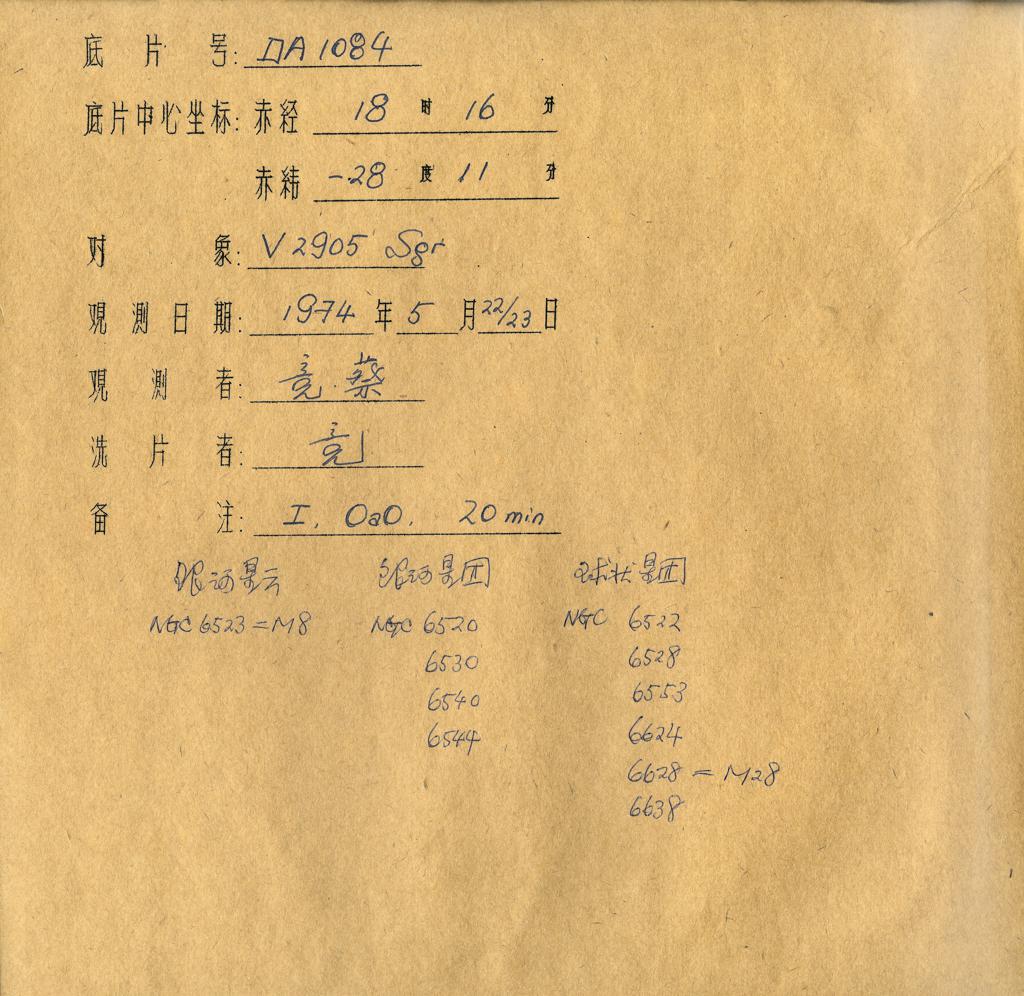 底片号: DA 1084
底片中心坐标: 赤经 18 时 16 分
赤纬 -28 度 11 分
对象: V2905 Sgr
观测日期: 1974 年 5 月 22/23 日
观测者: 竞.蔡
洗片者: 竞
备注: I, OaO, 20 min
银河星云 银河星团 球状星团
NGC 6523 = M8 NGC 6520 NGC 6522
6530 6528
6540 6553
6544 6624
6628 = M28
6638